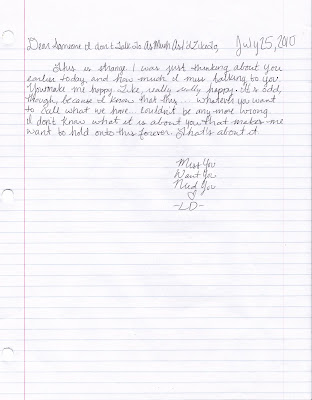 Dear Someone I don't Talk To As Much As I'd Like To, July 25, 2010
This is strange I was just thinking about you
earlier today, and how much I miss talking to you.
You make me happy. Like, really really happy. It's odd,
though, because I know that this... whatever you want
to call what we have.. Couldn't be any more wrong.
I don't know what it is about you that makes me
want to hold onto this forever. That's about it.
Miss You
Want You
Need You
-LD-